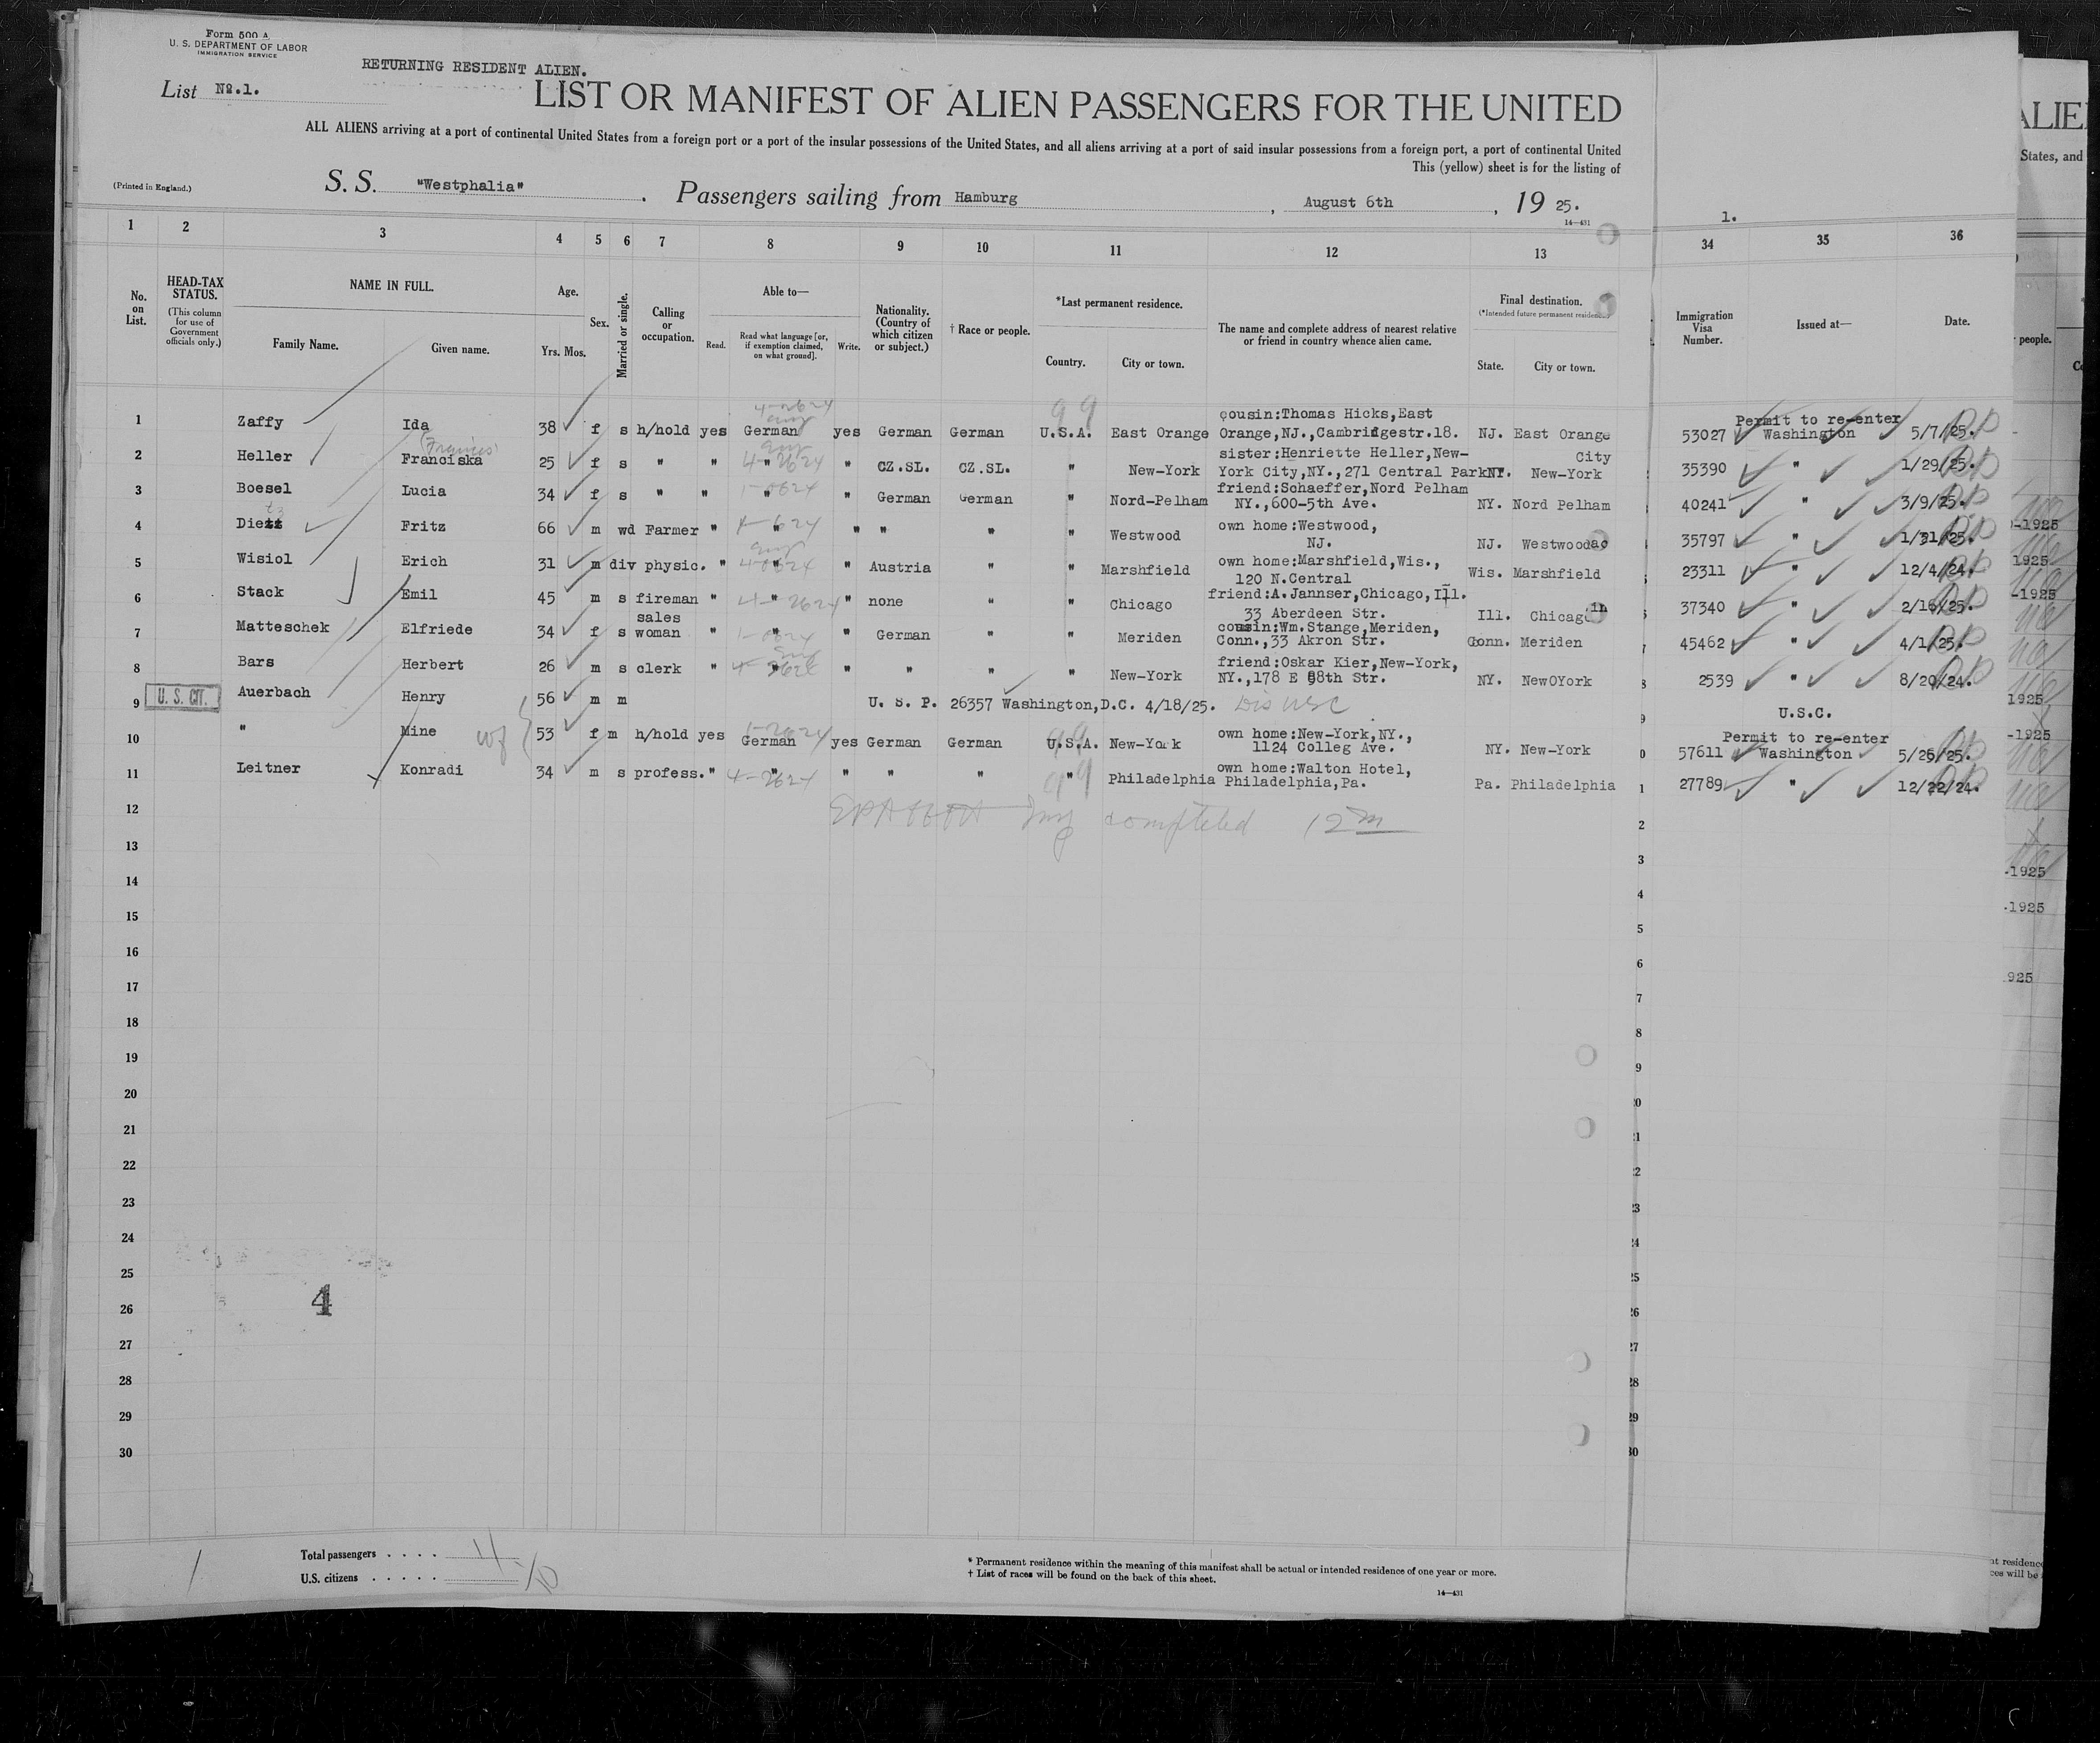 Form 500 A
U. S. DEPARTMENT OF LABOR
IMMIGRATION SERVICE
RETURNING RESIDENT ALIEN.
List No.1.
LIST OR MANIFEST OF ALIEN PASSENGERS FOR THE UNITED
ALL ALIENS arriving at a port of continental United States from a foreign port or a port of the insular possessions of the United States, and all aliens arriving at a port of said insular possessions from a foreign port, a port of continental United
This (yellow) sheet is for the listing of
(Printed in England.)
S. S. "Westphalia" . Passengers sailing from Hamburg , August 6th , 19 25.
14—431
1 2 3 4 5 6 7 8 9 10 11 12 13
No. on List.
HEAD-TAX STATUS.
(This column for use of Government officials only.)
NAME IN FULL.
Family Name. Given name.
Age.
Yrs. Mos.
Sex.
Married or single.
Calling or occupation.
Able to—
Read. Read what language [or, if exemption claimed, on what ground]. Write.
Nationality. (Country of which citizen or subject.)
† Race or people.
*Last permanent residence.
Country. City or town.
The name and complete address of nearest relative or friend in country whence alien came.
Final destination.
(*Intended future permanent residence.)
State. City or town.
1.
34 35 36
Immigration Visa Number. Issued at— Date.
1 Zaffy Ida 38 f s h/hold yes German yes German German U.S.A. East Orange cousin:Thomas Hicks,East Orange,NJ.,Cambridgestr.18. NJ. East Orange 53027 Permit to re-enter Washington 5/7/25.
2 Heller Franciska (Frances) 25 f s " " " " CZ.SL. CZ.SL. " New-York sister:Henriette Heller,New-York City,NY.,271 Central Park NY. New-York City 35390 " 1/29/25.
3 Boesel Lucia 34 f s " " " " German German " Nord-Pelham friend:Schaeffer,Nord Pelham NY.,600-5th Ave. NY. Nord Pelham 40241 " 3/9/25.
4 Dietz Fritz 66 m wd Farmer " " " " " " Westwood own home:Westwood, NJ. NJ. Westwood 35797 " 1/31/25.
5 Wisiol Erich 31 m div physic. " " " Austria " " Marshfield own home:Marshfield,Wis., 120 N.Central Wis. Marshfield 23311 " 12/4/24.
6 Stack Emil 45 m s fireman " " " none " " Chicago friend:A.Jannser,Chicago,Ill. 33 Aberdeen Str. Ill. Chicago 37340 " 2/16/25.
7 Matteschek Elfriede 34 f s sales woman " " " German " " Meriden cousin:Wm.Stange,Meriden, Conn.,33 Akron Str. Conn. Meriden 45462 " 4/1/25.
8 Bars Herbert 26 m s clerk " " " " " " New-York friend:Oskar Kier,New-York, NY.,178 E 98th Str. NY. NewOYork 2539 " 8/20/24.
9 U. S. CIT. Auerbach Henry 56 m m U. S. P. 26357 Washington,D.C. 4/18/25. Dis USC U.S.C.
10 " Mine wf 53 f m h/hold yes German yes German German U.S.A. New-York own home:New-York,NY., 1124 Colleg Ave. NY. New-York 57611 Permit to re-enter Washington 5/26/25.
11 Leitner Konradi 34 m s profess. " " " " " " Philadelphia own home:Walton Hotel, Philadelphia,Pa. Pa. Philadelphia 27789 " 12/22/24.
12 completed 12 m
13
14
15
16
17
18
19
20
21
22
23
24
25
26
27
28
29
30
4
Total passengers . . . . 11
U.S. citizens . . . . .
* Permanent residence within the meaning of this manifest shall be actual or intended residence of one year or more.
† List of races will be found on the back of this sheet.
14—431
ALIE
States, and
people.
-1925
1925
-1925
1925
-1925
-1925
-1925
925